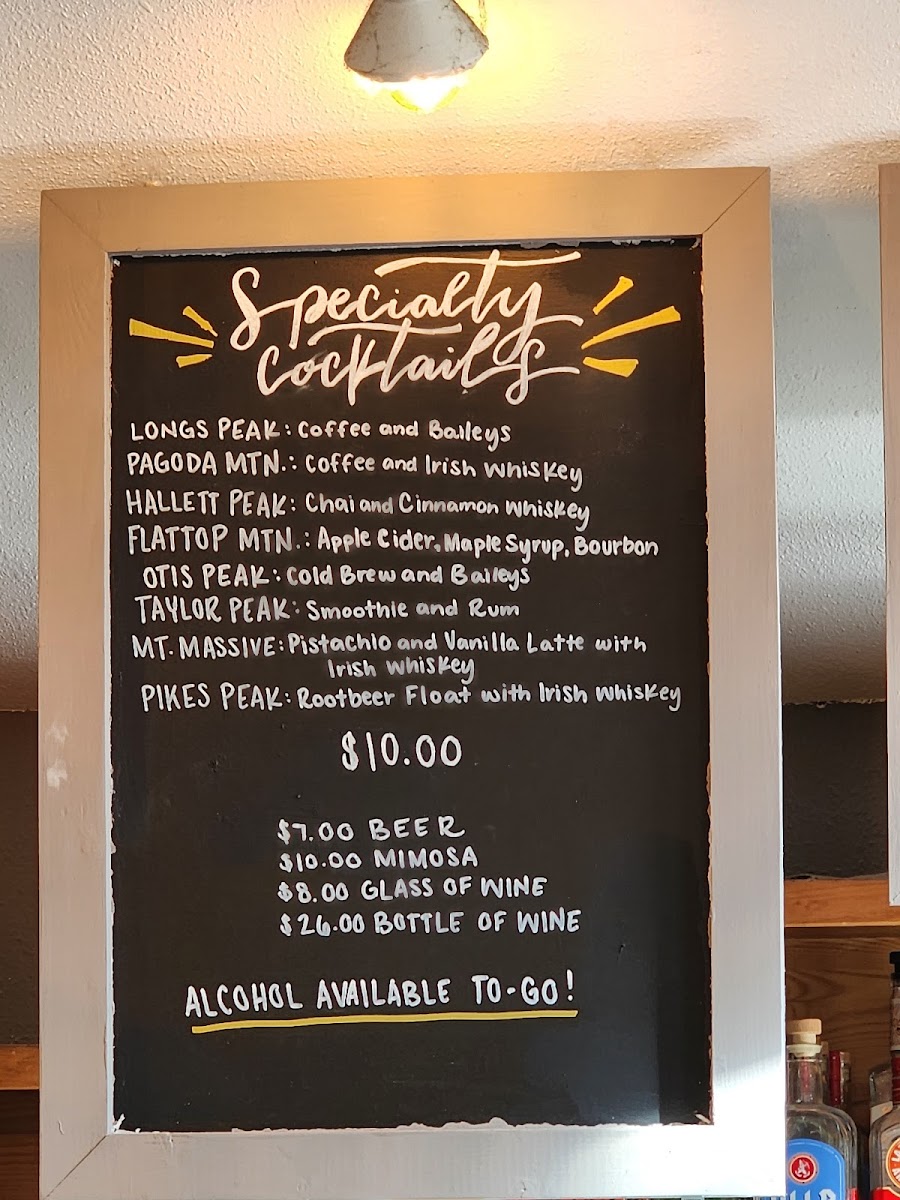 Specialty
Cocktails
LONGS PEAK: Coffee and Baileys
PAGODA MTN.: Coffee and Irish Whiskey
HALLETT PEAK: Chai and Cinnamon Whiskey
FLATTOP MTN.: Apple Cider, Maple Syrup, Bourbon
OTIS PEAK: Cold Brew and Baileys
TAYLOR PEAK: Smoothie and Rum
MT. MASSIVE: Pistachio and Vanilla Latte with
Irish Whiskey
PIKES PEAK: Rootbeer Float with Irish Whiskey
$10.00
$7.00 BEER
$10.00 MIMOSA
$8.00 GLASS OF WINE
$26.00 BOTTLE OF WINE
ALCOHOL AVAILABLE TO-GO!